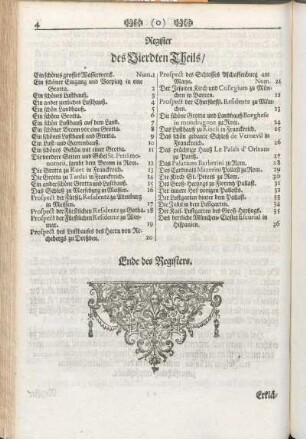 4
(o)
Register
des Vierdten Theils/
Ein schönes grosses Wasserwerck. Num.1
Ein schöner Eingang und Vorplatz in eine
Grotta. 2
Ein schönes Lusthauß. 3
Ein ander zierliches Lusthauß. 4
Ein schön Landhauß. 5
Ein schön Grotta. 6
Ein schön Lusthauß auf dem Land. 7
Ein schöner Bronn vor eine Grotta. 8
Ein schönes Lusthauß und Grotta. 9
Ein Lust- und Gartenhauß. 10
Ein schönes Gebäu mit einer Grotta. 11
Die vordere Seiten am Gebäu St. Petri
montorii, samt dem Bronn in Rom. 12
Die Grotta zu Ruel in Franckreich. 13
Die Grotta zu in Franckreich. 14
Ein anders schönes Lusthauß und Grotta. 15
Das Schloß zu Merseburg in Meissen. 16
Prospect der Fürstlichen Residentz zu Altenburg
in Meissen. 17
Prospect der Fürstlichen Residentz zu Gotha. 18
Prospect der Fürstlichen Residentz zu Weymar.
19
Prospect des Lusthauses des Herrn von
zu Dreßden. 20
Prospect des Schlosses Aschaffenburg am
Mayn. Num. 21
Der Jesuiten Kirch und Collegium zu München
in Bayern. 22
Prospect der Churfürstl. Residentz zu München.
23
Die schöne Grotta und Landhauß Borghese
in zu Rom. 24
Das Lusthauß zu in Franckreich. 25
Das schön gebaute Schloß de Verneuil in
Franckreich. 26
Das prächtige Hauß Le Palais d'Orleans
zu Pariß. 27
Das Palatium Barberini zu Rom. 28
Des Cardinals Mazarini Pallast zu Rom. 29
Die Kirch St. Peters zu Rom. 30
Des Groß-Hertzogs zu Florentz Pallast. 31
Der innere Hof vorigen Pallasts. 32
Der Lustgarten hinter dem Pallast. 33
Die Insul in den Lustgarten. 34
Der Lustgarten des Groß-Hertzogs. 35
Das herrliche Münch und Closter Escurial in
Hispanien. 36
Ende des Registers.
Erklä-